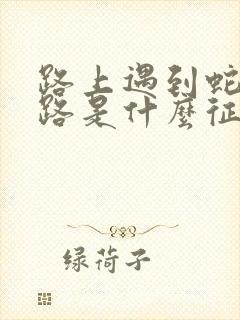 路上遇到蛇
路是什麼征
绿荷子